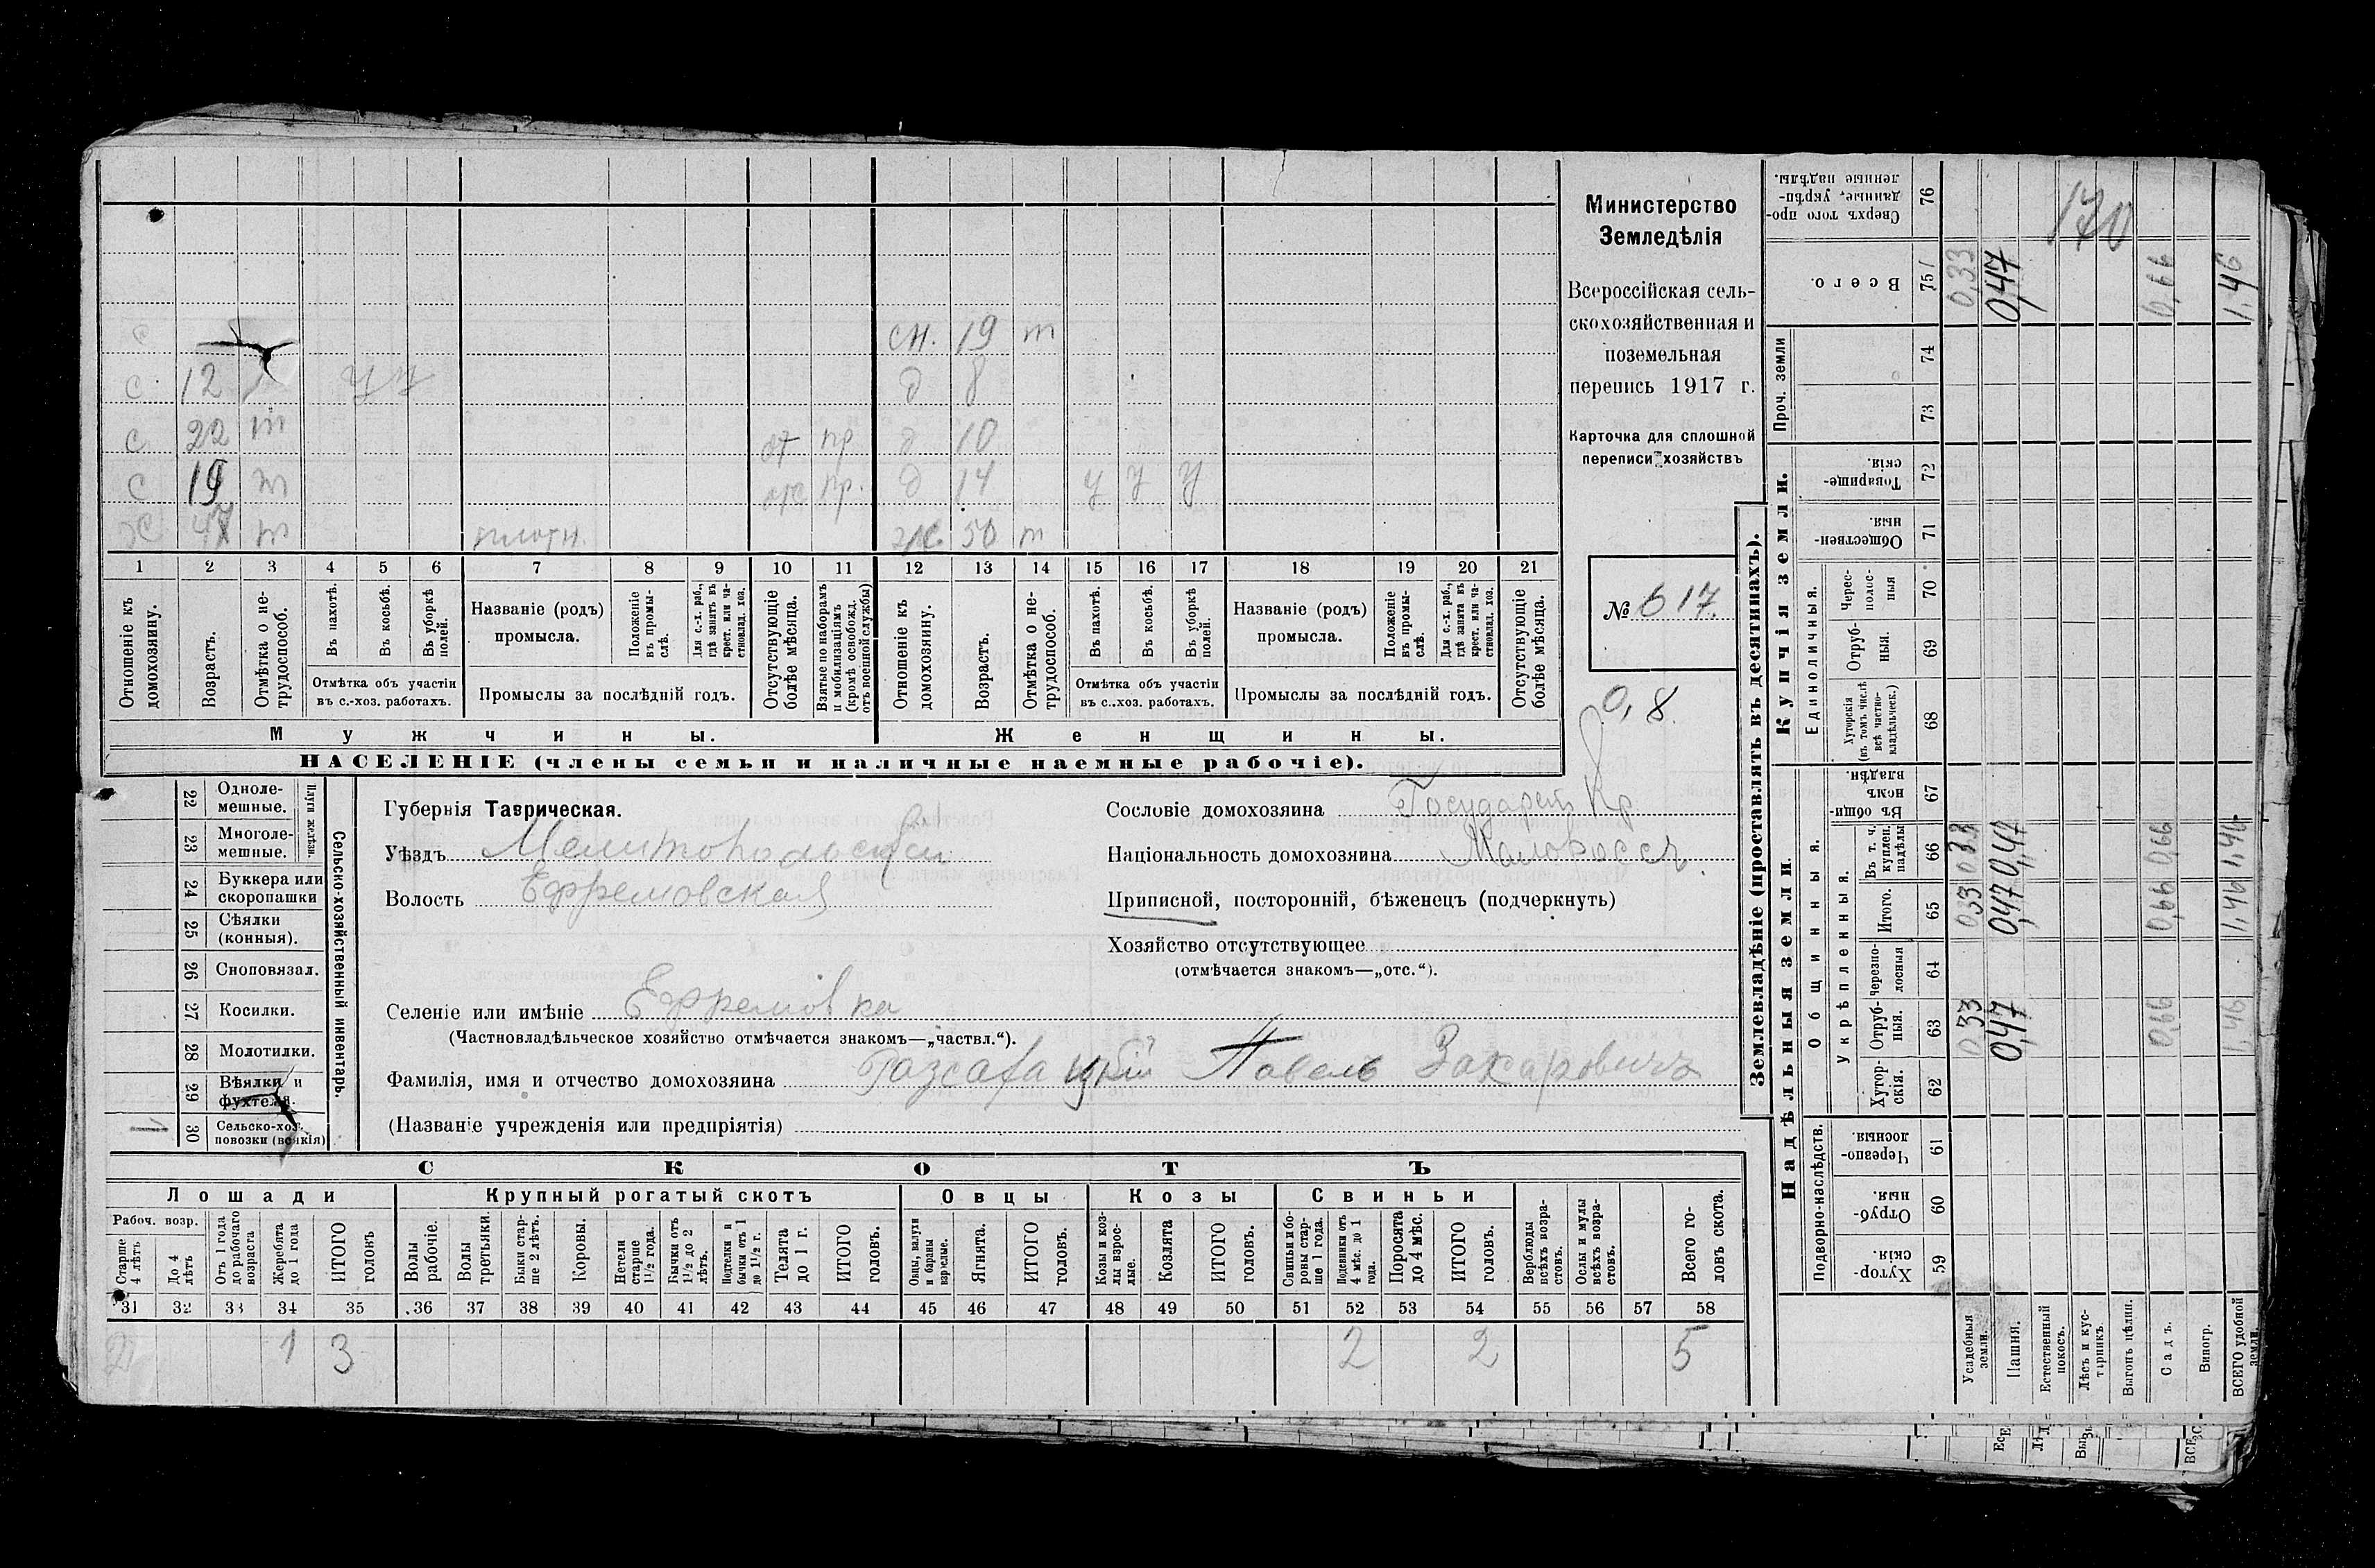 Министерство
Земледѣлія
Всероссійская сель-
скохозяйственная и
поземельная
перепись 1917 г.
Карточка для сплошной
переписи хозяйствъ
№ 617.
0,8
с
с 12 у у
с 22 т от пр
с 19 т пр.
47 т плотн.
сн. 19 т
д 8
д 10
д 14 у у у
ж 50 т
1 2 3 4 5 6 7 8 9 10 11 12 13 14 15 16 17 18 19 20 21
Отношеніе къ домохозяину.
Возрастъ.
Отмѣтка о не-трудоспособ.
Въ пахотѣ.
Въ косьбѣ.
Въ уборкѣ полей.
Отмѣтка объ участіи въ с.-хоз. работахъ.
Названіе (родъ) промысла.
Положеніе въ промы-слѣ.
Для с.-х. раб., гдѣ занятъ въ крест. или ча-стновлад. хоз.
Промыслы за послѣдній годъ.
Отсутствующіе болѣе мѣсяца.
Взятые по наборамъ и мобилизаціямъ (кромѣ освобожд. отъ военной службы)
Отношеніе къ домохозяину.
Возрастъ.
Отмѣтка о не-трудоспособ.
Въ пахотѣ.
Въ косьбѣ.
Въ уборкѣ полей.
Отмѣтка объ участіи въ с..хоз. работахъ.
Названіе (родъ) промысла.
Положеніе въ промы-слѣ.
Для с.-х. раб., гдѣ занята въ крест. или ча-стновлад. хоз.
Промыслы за послѣдній годъ.
Отсутствующіе болѣе мѣсяца.
Мужчины.
Женщины.
НАСЕЛЕНІЕ (члены семьи и наличные наемные рабочіе).
Сельско-хозяйственный инвентарь.
Плуги желѣзн.
22 Одноле-мешные.
23 Многоле-мешные.
24 Буккера или скоропашки
25 Сѣялки (конныя).
26 Сноповязал.
27 Косилки.
28 Молотилки.
29 Вѣялки и фухтеля.
30 Сельско-хоз. повозки (всякія)
Губернія Таврическая.
Уѣздъ Мелитопольскій
Волость Ефремовская
Селеніе или имѣніе Ефремовка
(Частновладѣльческое хозяйство отмѣчается знакомъ—„частвл.“).
Фамилія, имя и отчество домохозяина Павелъ Захаровичъ
(Названіе учрежденія или предпріятія)
Сословіе домохозяина Государст. Кр
Національность домохозяина Малороссъ.
Приписной, посторонній, бѣженецъ (подчеркнуть)
Хозяйство отсутствующее
(отмѣчается знакомъ—„отс.“).
СКОТЪ
Лошади
Крупный рогатый скотъ
Овцы
Козы
Свиньи
Рабоч. возр.
Старше 4 лѣтъ
До 4 лѣтъ
Отъ 1 года до рабочаго возраста
Жеребята до 1 года
ИТОГО головъ
Волы рабочіе.
Волы третьяки.
Быки стар-ше 2 лѣтъ.
Коровы.
Нетели старше 1½ года.
Бычки отъ 1½ до 2 лѣтъ.
Подтелки и бычки отъ 1 до 1½ г.
Телята до 1 г.
ИТОГО головъ.
Овцы, валухи и бараны взрослые.
Ягнята.
ИТОГО головъ.
Козы и коз-лы взрос-лые.
Козлята
ИТОГО головъ.
Свиньи и бо-ровы стар-ше 1 года.
Подсвинки отъ 4 мѣс. до 1 года.
Поросята до 4 мѣс.
ИТОГО головъ.
Верблюды всѣхъ возра-стовъ.
Ослы и мулы всѣхъ возра-стовъ.
Всего го-ловъ скота.
31 32 33 34 35 36 37 38 39 40 41 42 43 44 45 46 47 48 49 50 51 52 53 54 55 56 57 58
2 1 3 2 2 5
Землевладѣніе (проставлять въ десятинахъ).
Надѣльныя земли.
Купчія земли.
Проч. земли
Подворно-наслѣдств.
Общинныя.
Укрѣпленныя.
Единоличныя.
59 Хутор-скія.
60 Отруб-ныя.
61 Черезпо-лосныя.
62 Хутор-скія.
63 Отруб-ныя.
64 Черезпо-лосныя
65 Итого.
66 Въ т. ч. куплен. надѣлы
67 Въ общи-номъ владѣн.
68 Хуторскія (въ томъ числѣ всѣ частно-владѣльческ.)
69 Отруб-ныя.
70 Черес-полос-ныя
71 Обществен-ныя.
72 Товарище-скія.
73
74
75 Всего.
76 Сверхъ того про-данные, укрѣп-ленные надѣлы.
Усадебныя земли. 0,33 0,33 0,33 0,33
Пашня. 0,47 0,47 0,47 0,47
Естественный покосъ.
Лѣсъ и кус-тарникъ.
Выгонъ цѣлин.
Садъ. 0,66 0,66 0,66 0,66
Виногр.
ВСЕГО удобной земли. 1,46 1,46 1,46 1,46
170